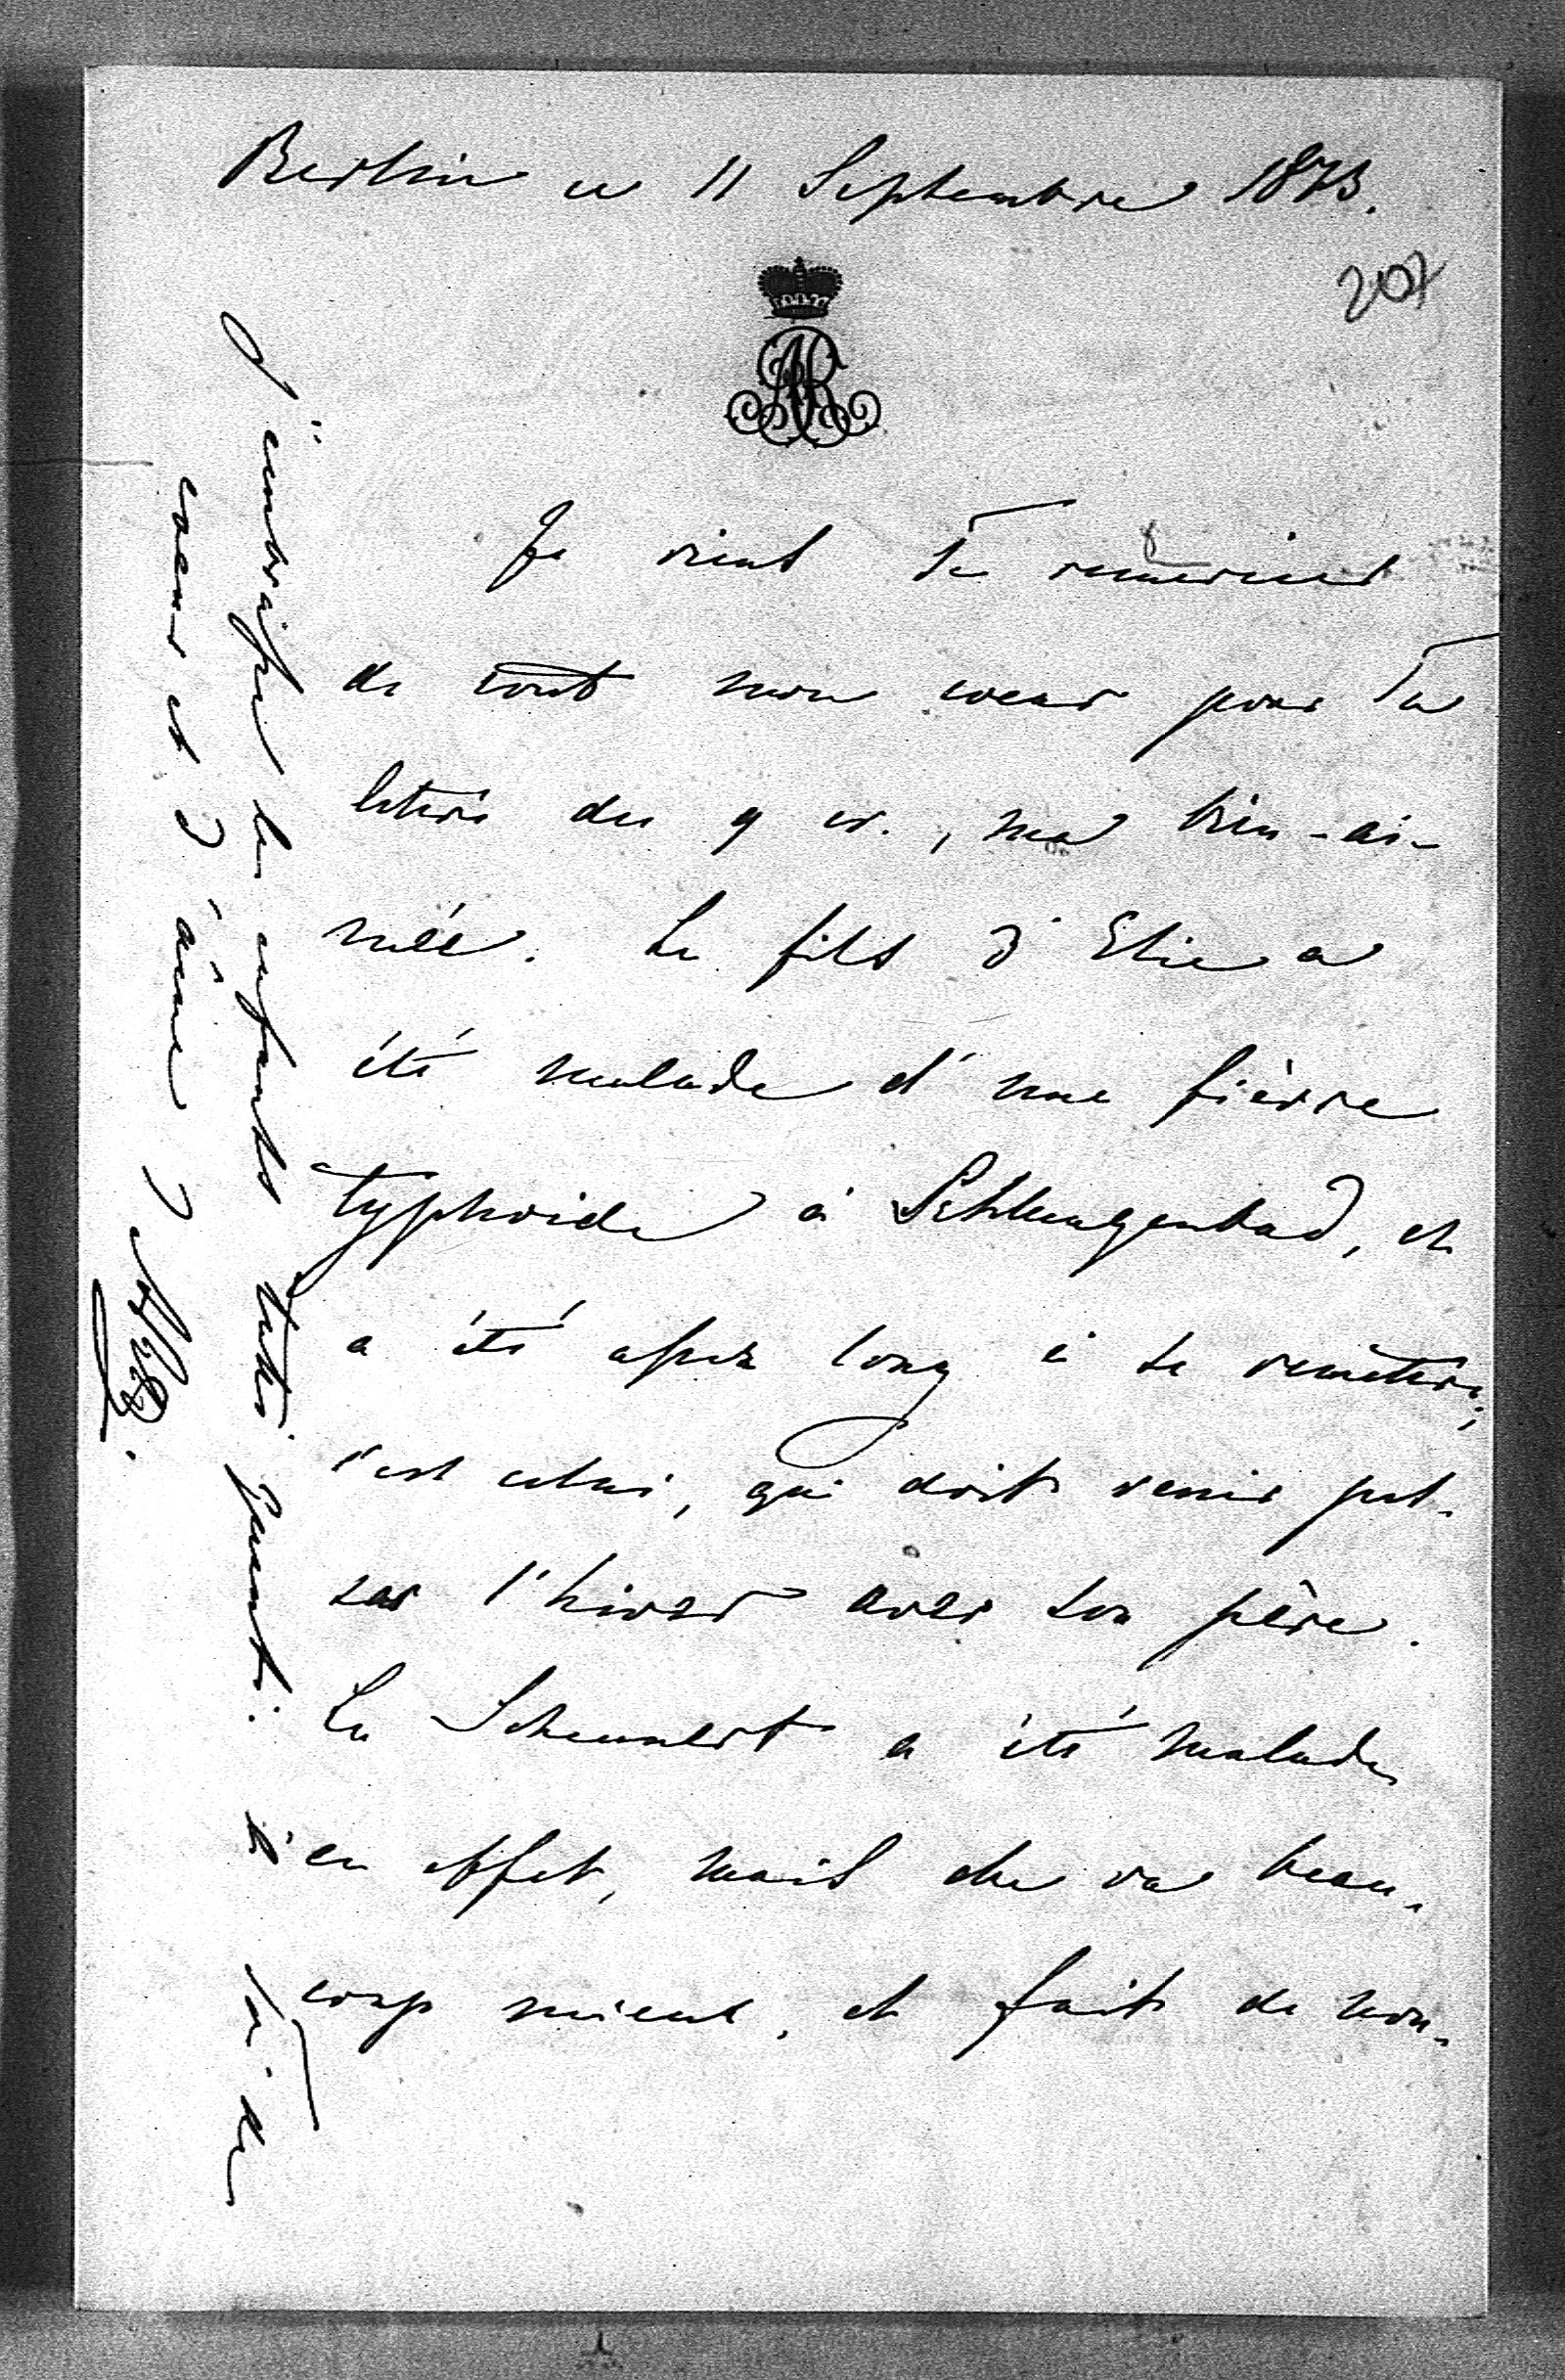 Berlin ce 11 Septembre 1873.
207
AR
Je viens Te remercier
de tout mon coeur pour Ta
lettre du 9 cr., ma bien-ai-
mée. Le fils d'Elie a
été malade d'une fièvre
typhoide à Schlangenbad, et
a été assez long à se remettre;
c'est celui, qui doit venir pas-
ser l'hiver avec son père.
La Schennert a été malade,
en effet, mais elle va beau-
coup mieux, et fait de nou-
J'embrasse les enfants
à Toi de
coeur et d'âme